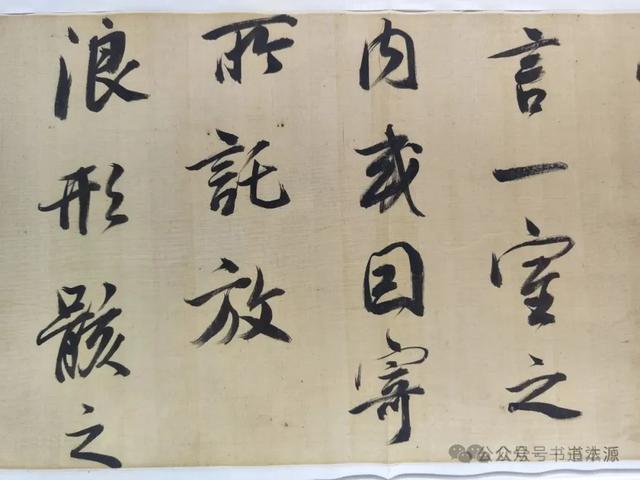 言一室之
内或因寄
所託放
浪形骸之
公众众号书道法源